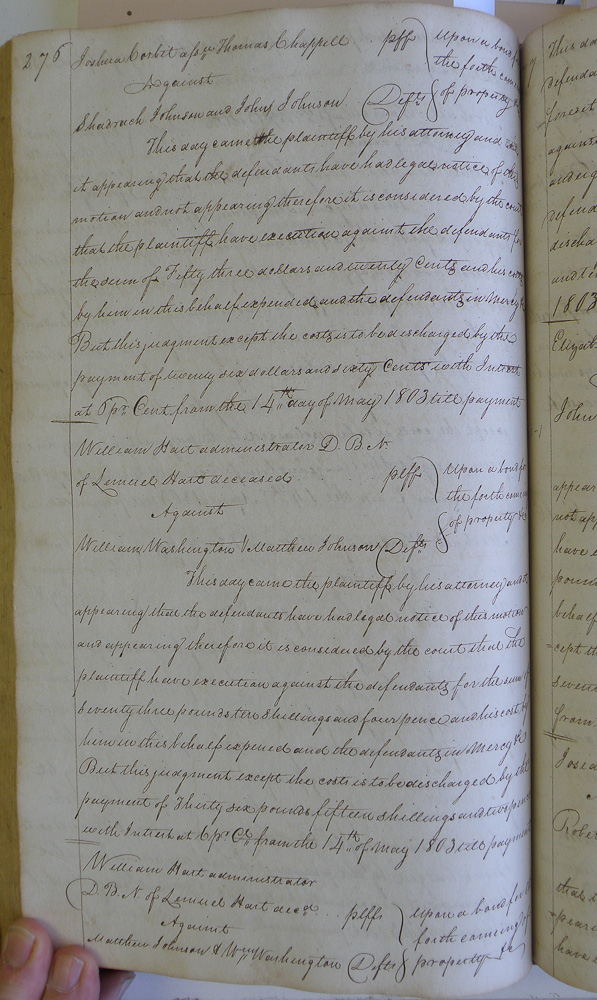 276 Joshua Corbit assee Thomas Chappell plff Upon a bond for
Against the forth coming
Shadrach Johnson and John Johnson Defts of property &c
This day came the plaintiff by his attorney and
it appearing that the defendants have had legal notice of this
motion and not appearing therefore it is considered by the court
that the plaintiff have execution against the defendants for
the sum of Fifty three dollars and twenty Cents and his costs
by him in this behalf expended and the defendants in Mercy &c
But this judgment except the costs is to be discharged by the
payment of twenty six dollars and sixty Cents with Interest
at 6 pr. Cent from the 14th day of May 1803 till payment
William Hart administrator D. B. N.
of Lemuel Hart deceased plff Upon a bond for
Against the forth coming
of property &c
William Washington & Matthew Johnson Defts
This day came the plaintiff by his attorney and it
appearing that the defendants have had legal notice of this motion
and appearing therefore it is considered by the court that the
plaintiff have execution against the defendants for the sum of
Seventy three pounds ten Shillings and four pence and his cost by
him in this behalf expened and the defendants in Mercy &c
But this judgment except the costs is to be discharged by the
payment of Thirty six pounds fifteen shillings and two pence
with Interest at 6 pr Ct from the 14th of May 1803 till payment
William Hart administrator
D. B. N. of Lemuel Hart decd plffs Upon a bond for the
Against forth coming of
Matthew Johnson & Wm Washington Defts property &c
This da
defenda
against
refend
discha
1803
Elizab
John
appear
not app
have e
poun
behalf
cept th
Sevent
from
Rober
that i
have e